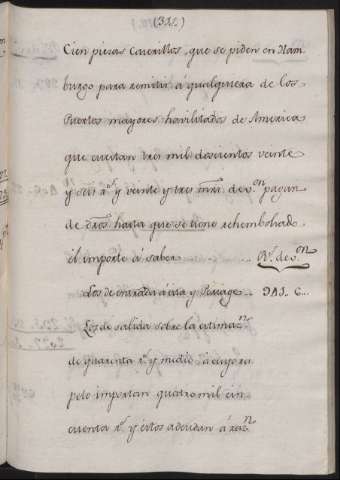 (31.)
Cien piezas Caserillos, que se piden en Ham
burgo para remitir á qualquiera de los
Puertos mayores havilitados de America
que cuestan tres mil doscientos veinte
y seis r.^s y veinte y tres mrs. de v.^on pagan
de dros hasta que se tiene rehembolsado
el importe á saber R.^s de v.^on
Los de entrada á esta y
Los de salida sobre la estimaz.^n
de quarenta r.^s y medio
importan quatro mil cin
cuenta r.^s y éstos adeudan á raz.^n